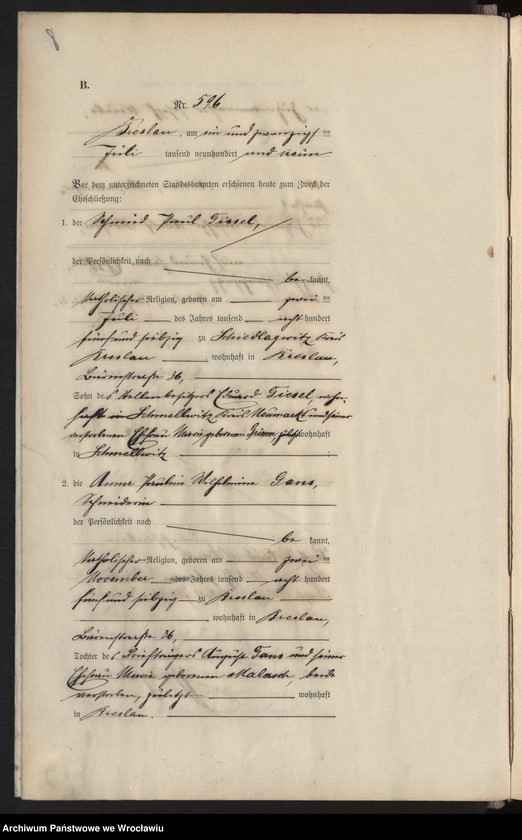 8
B.
Nr. 596
Breslau, am ein und zwanzigsten
Juli tausend neunhundert und neun
Vor dem unterzeichneten Standesbeamten erschienen heute zum Zweck der
Eheschließung:
1. der Schmied Paul Giesel,
der Persönlichkeit nach
be kannt,
katholischer Religion, geboren am zwei
Juli des Jahres tausend acht hundert
fünf und siebzig zu Schiedlagwitz Kreis
Breslau, wohnhaft in Breslau,
Bärenstraße 26,
Sohn des Stellenbesitzers Eduard Giesel, wohn-
haft in Schmellwitz Kreis Neumarkt und seiner
verstorbenen Ehefrau Maria geborenen Grimm, zuletzt wohnhaft
in Schmellwitz
2. die Anna Pauline Wilhelmine Gans,
Schneiderin
der Persönlichkeit nach
be kannt,
katholischer Religion, geboren am zwei
November des Jahres tausend acht hundert
fünf und siebzig zu Breslau
, wohnhaft in Breslau,
Bärenstraße 26,
Tochter des Briefträgers August Gans und seiner
Ehefrau Maria geborenen Malasch, beide
verstorben, zuletzt wohnhaft
in Breslau.
Archiwum Państwowe we Wrocławiu